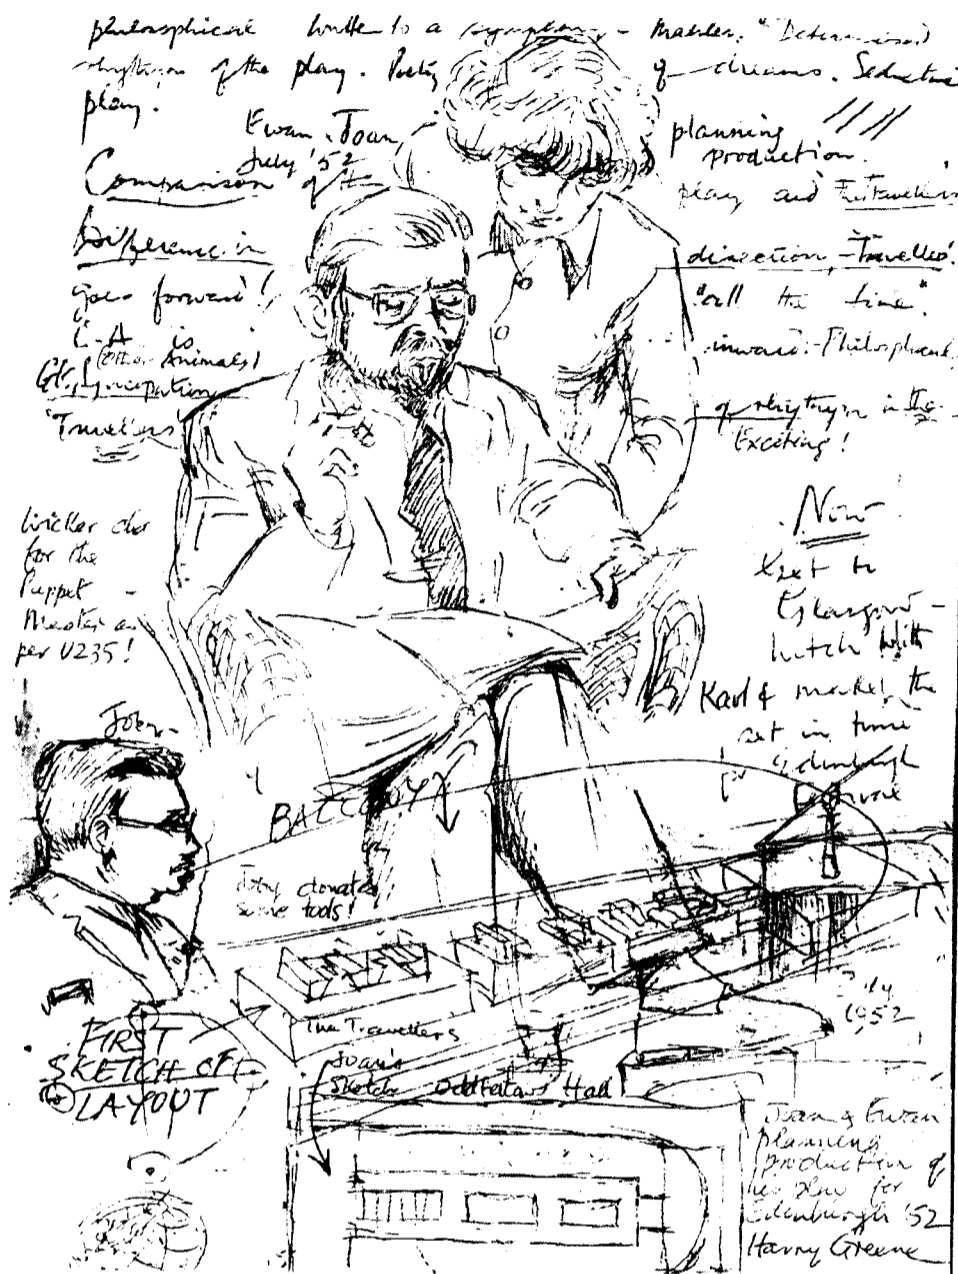 philosophical
to a symphony - Mahler. "Determined
rhythym of the play. Poetry
of dreams. Seductive
play.
Ewan, Joan,
July '52
planning
production.
Comparison of the
play and The Travellers
Difference in
direction - Travellers!
goes forward!
"all the time".
is
inward. Philosphical
(Other Animals)
Syncopation
of rhythym in the
'Travellers'
Exciting!
wicker
for the
Puppet -
Master as
per V235!
Now
to
Glasgow -
hutch with
Karl & market the
set in time
for Edinburgh
John
BALCONY
Toby donated
some tools!
July
1952
The Travellers
FIRST
SKETCH OF
LAYOUT
Joan's
Sketch of Oddfellows Hall
Joan & Ewan
planning
production of
for
Edenburgh '52
Harry Greene